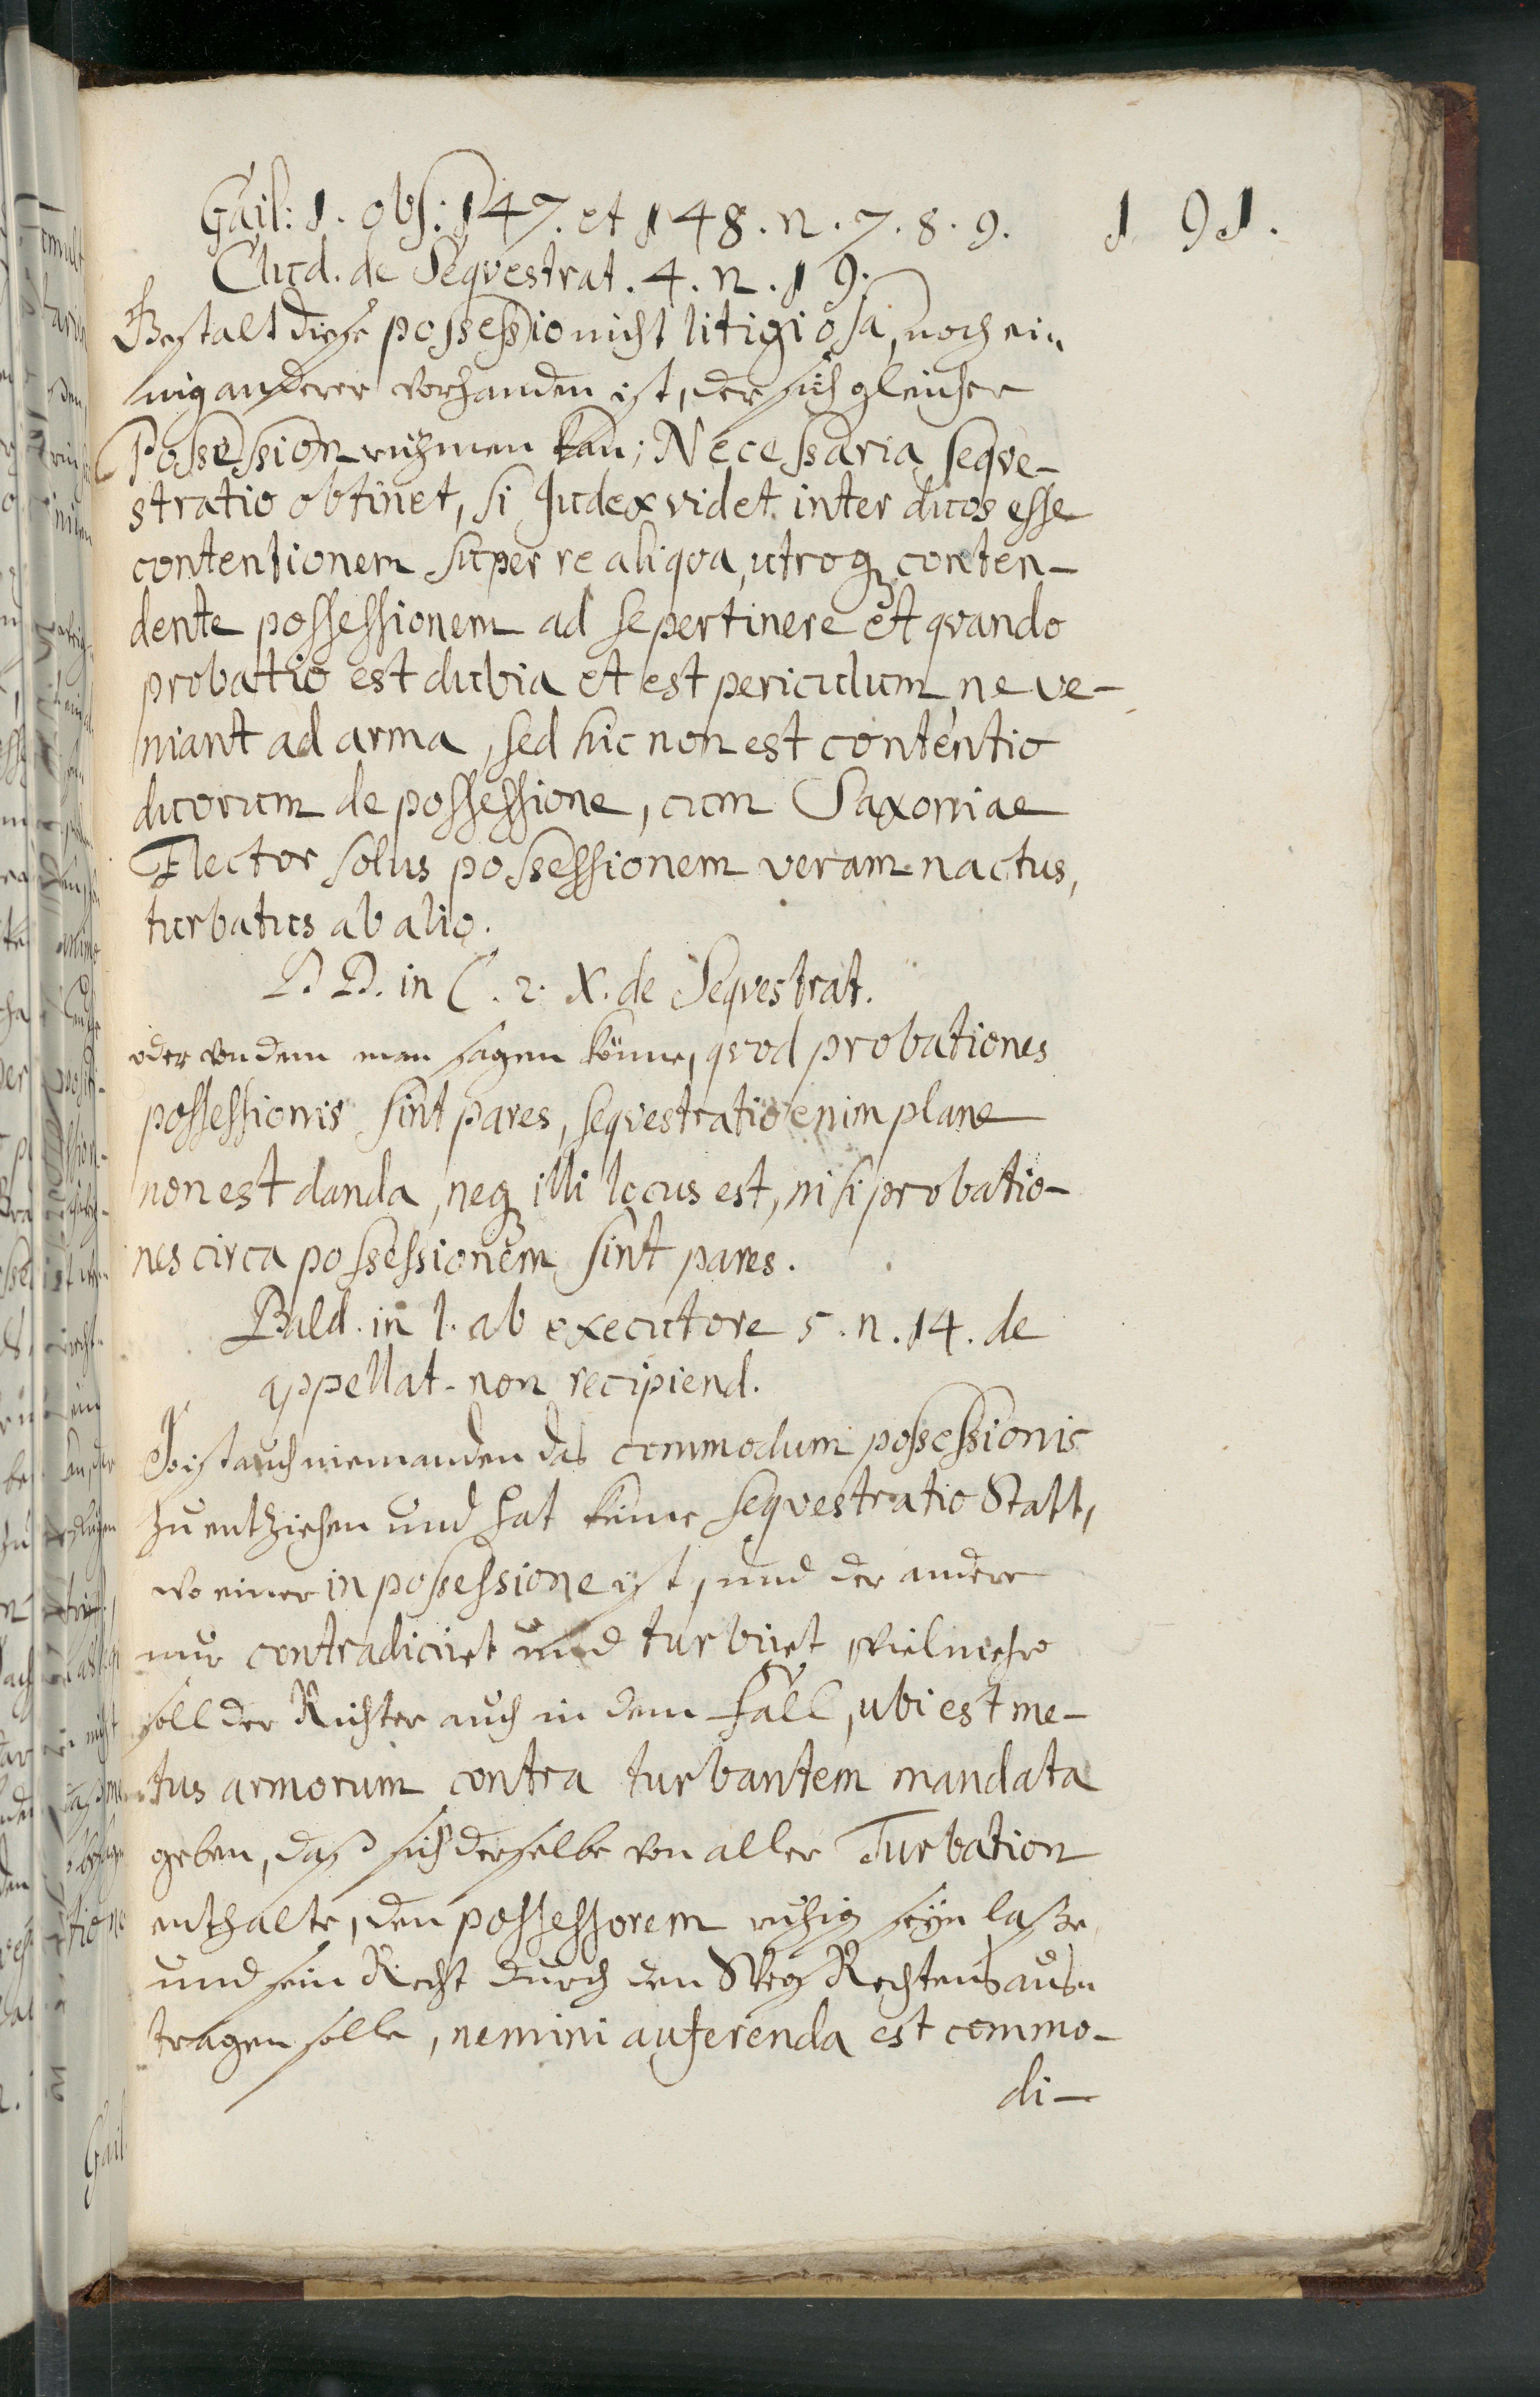 Gail: 1. obs: 147. et 148. n. 7. 8. 9.
191.
Clud. de Seqvestrat. 4. n. 19.
Gestalt diese possessio nicht litigiosa, noch ei„
nig anderer vorhanden ist, der sich gleicher
Possession rühmen kan; Necessaria seqve-
stratio obtinet, si Judex videt inter duos esse
contentionem super re aliqva, utroq; conten-
dente possessionem ad se pertinere et qvando
probatio est dubia et est periculum, ne ve-
niant ad arma, sed hic non est contentio
duorum de possessione, cum Saxoniae
Elector solus possessionem veram nactus,
turbatus ab alio.
DD. in C. 2. X. de Seqvestrat.
oder von dem man sagen könne, qvod probationes
possessionis sint pares, seqvestratio enim plane
non est danda, neq; illi locus est, nisi probatio-
nes circa possessionem sint pares.
Bald. in l. ab executore 5. n. 14. de
appellat. non recipiend.
So ist auch niemanden das commodum possessionis
zu entziehen und hat keine seqvestratio Statt,
wo einer in possessione ist, und der andere
nur contradiciret und turbiret, vielmehr
soll der Richter auch in dem fall, ubi est me-
tus armorum contra turbantem mandata
geben, daß sich derselbe von aller Turbation
enthalte, den possessorem ruhig seÿn laße
und sein Recht durch den Weg Rechtens aus„
tragen solle, nemini auferenda est commo-
di-